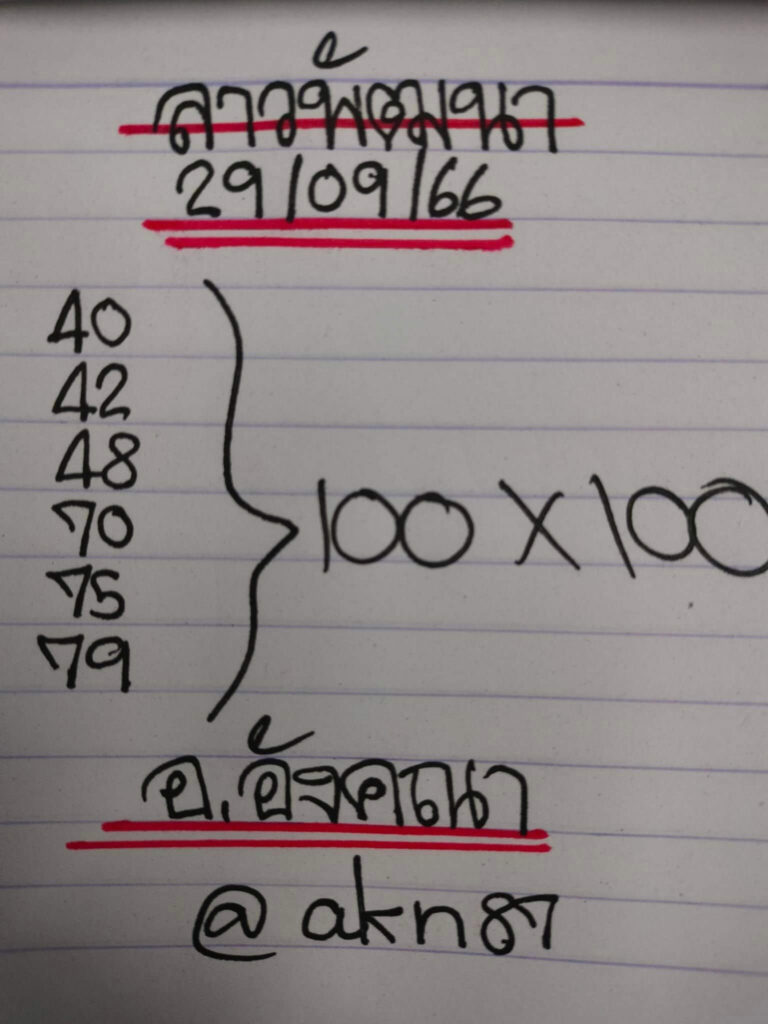 ลาวพัฒนา
29/09/66
40
42
48
70
75
79
100 X 100
อ.อังคณา
@akn87